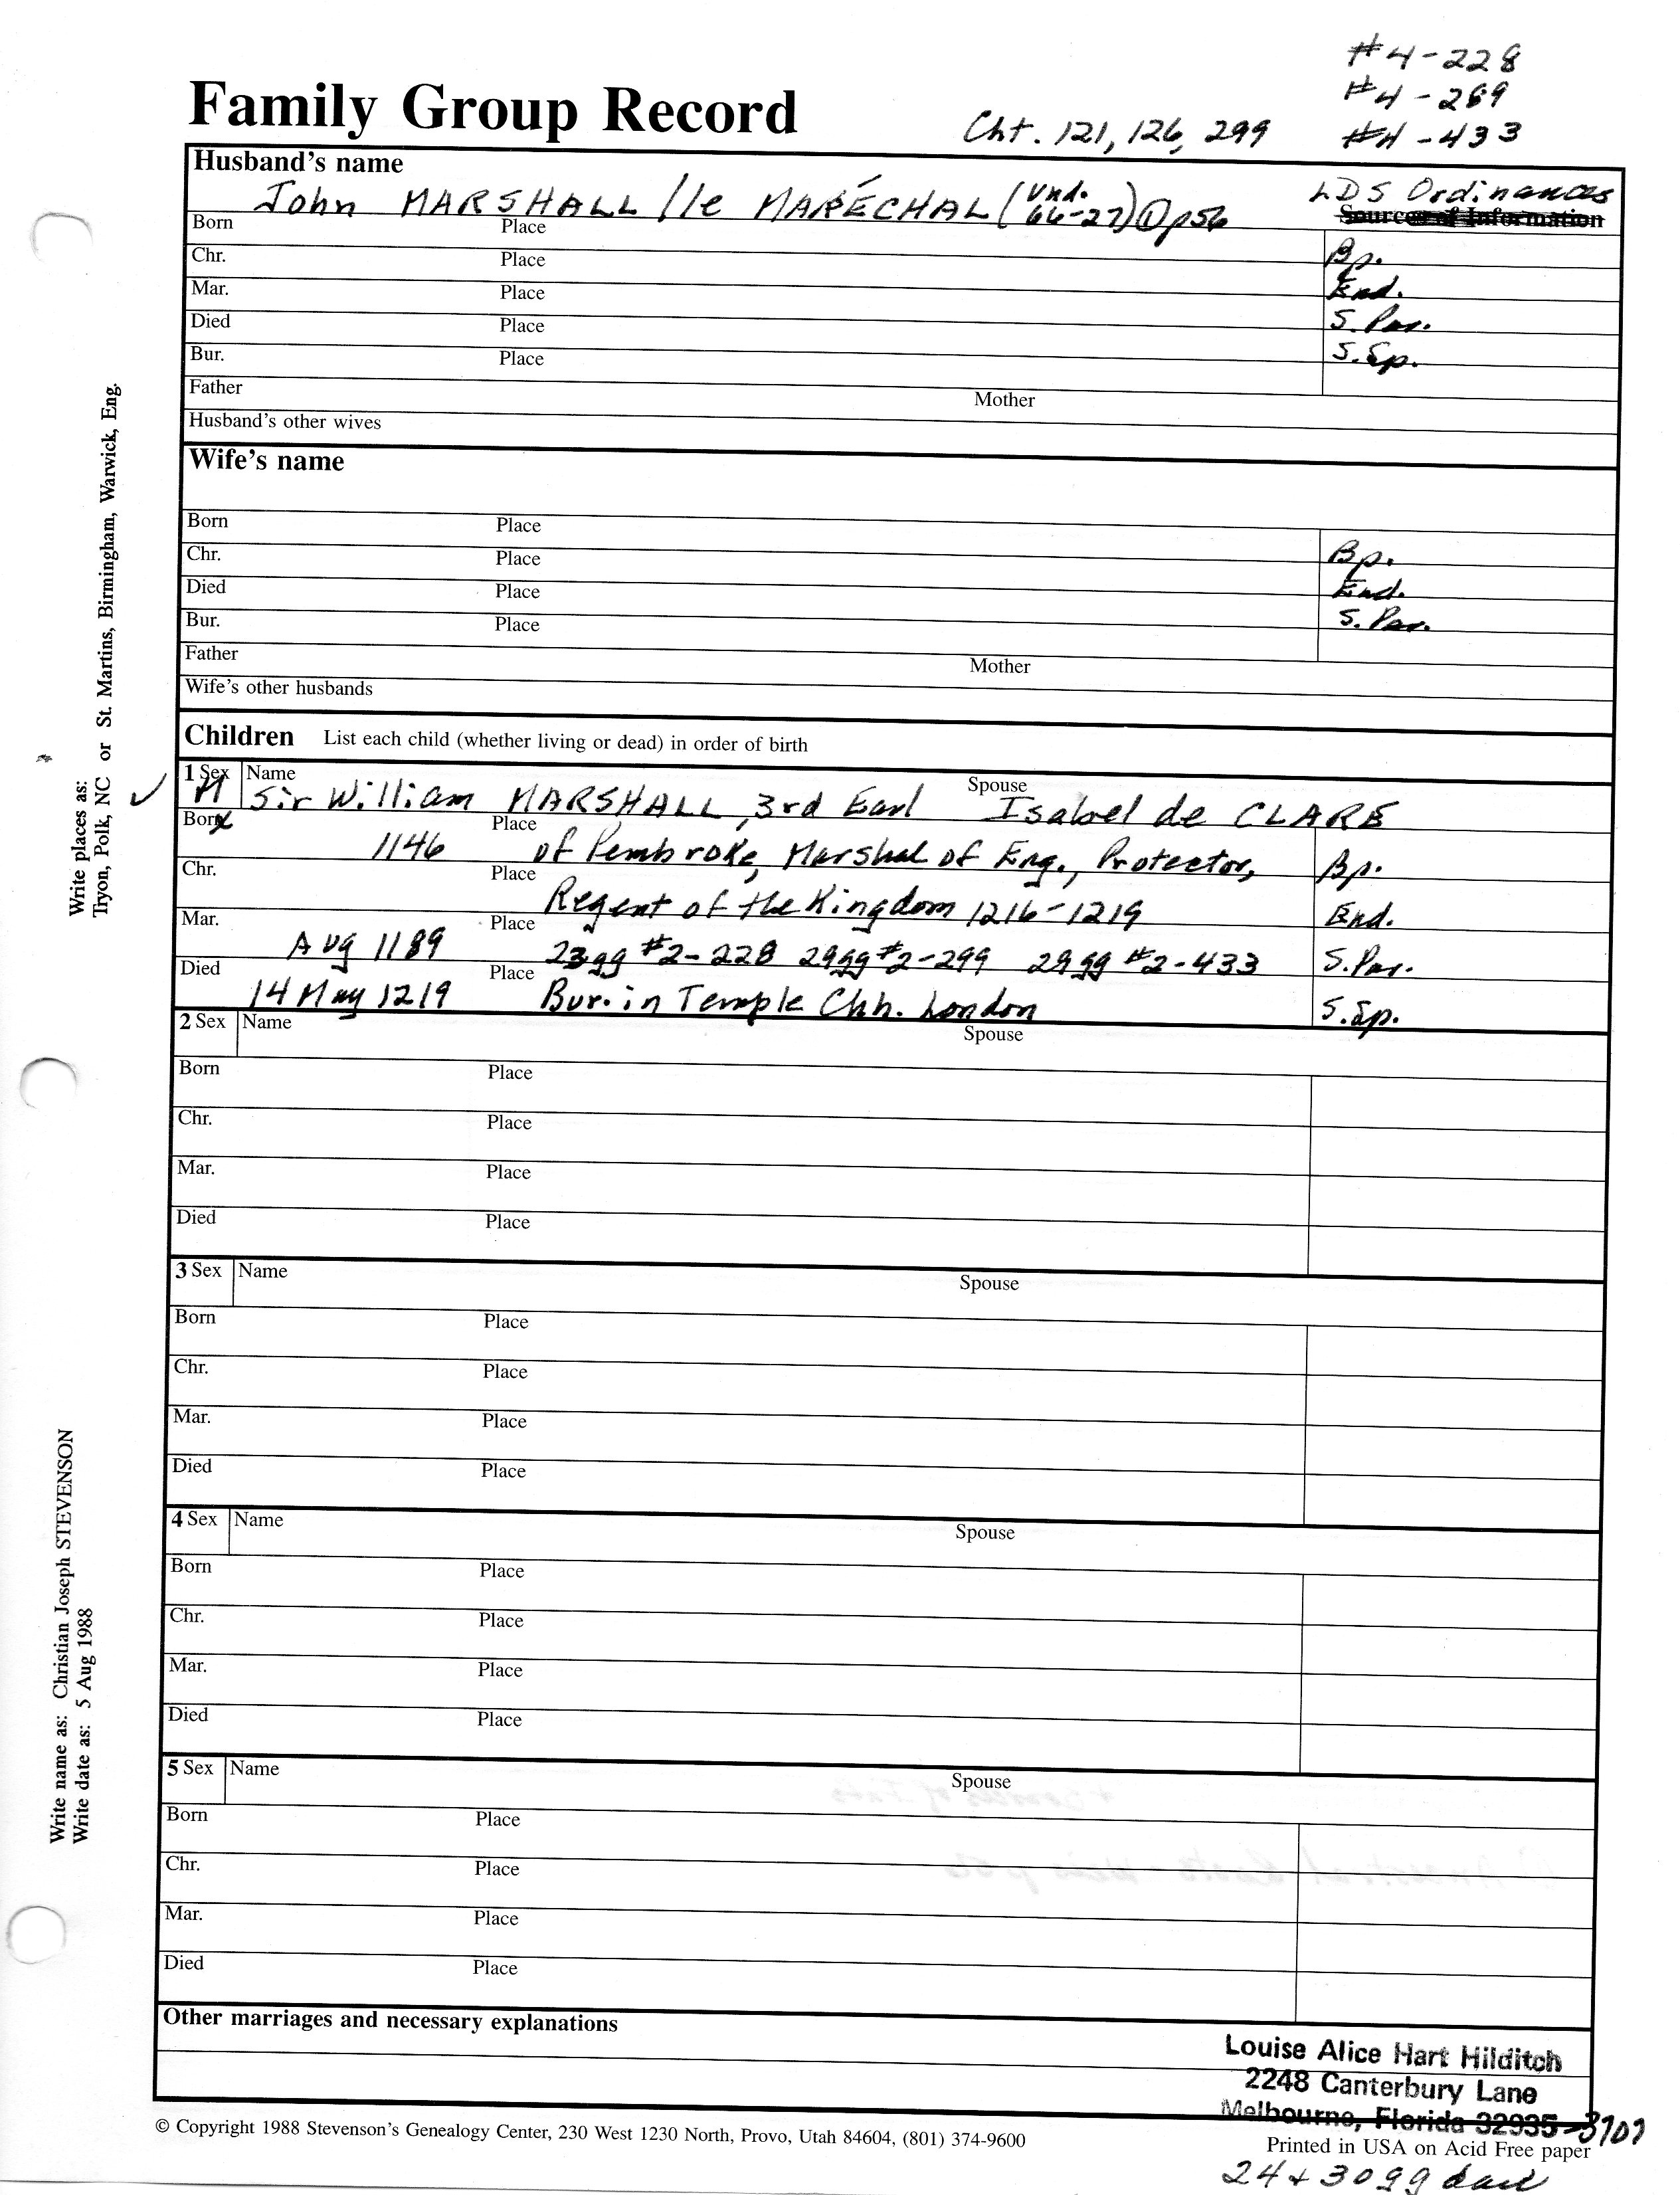 #4-228
#4-269
Family Group Record Cht. 121, 126, 299 #4-433
Husband's name
John MARSHALL / le MARÉCHAL (Und. 66-27) ① p56 LDS Ordinances
Born Place Source of Information
Chr. Place Bp.
Mar. Place End.
Died Place S. Par.
Bur. Place S. Sp.
Father Mother
Husband's other wives
Wife's name
Born Place
Chr. Place Bp.
Died Place End.
Bur. Place S. Par.
Father Mother
Wife's other husbands
Children List each child (whether living or dead) in order of birth
1 Sex Name Spouse
✓ M Sir William MARSHALL, 3rd Earl Isabel de CLARE
Born Place
1146 of Pembroke, Marshal of Eng., Protector, Bp.
Chr. Place
Regent of the Kingdom 1216-1219 End.
Mar. Place
Aug 1189 23gg #2-228 29gg #2-299 29gg #2-433 S. Par.
Died Place
14 May 1219 Bur. in Temple Chh. London S. Sp.
2 Sex Name Spouse
Born Place
Chr. Place
Mar. Place
Died Place
3 Sex Name Spouse
Born Place
Chr. Place
Mar. Place
Died Place
4 Sex Name Spouse
Born Place
Chr. Place
Mar. Place
Died Place
5 Sex Name Spouse
Born Place
Chr. Place
Mar. Place
Died Place
Other marriages and necessary explanations
Louise Alice Hart Hilditch
2248 Canterbury Lane
Melbourne, Florida 32935-3707
© Copyright 1988 Stevenson's Genealogy Center, 230 West 1230 North, Provo, Utah 84604, (801) 374-9600
Printed in USA on Acid Free paper
24 + 30 gg dau
Write places as:
Tryon, Polk, NC or St. Martins, Birmingham, Warwick, Eng.
Write name as: Christian Joseph STEVENSON
Write date as: 5 Aug 1988